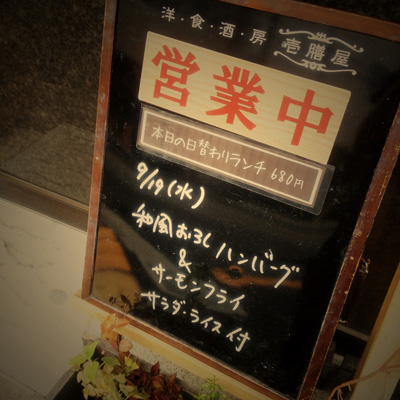 洋・食・酒・房
壱膳屋
営業中
本日の日替わりランチ 680円
9/19(水)
和風おろしハンバーグ
&
サーモンフライ
サラダ・ライス付